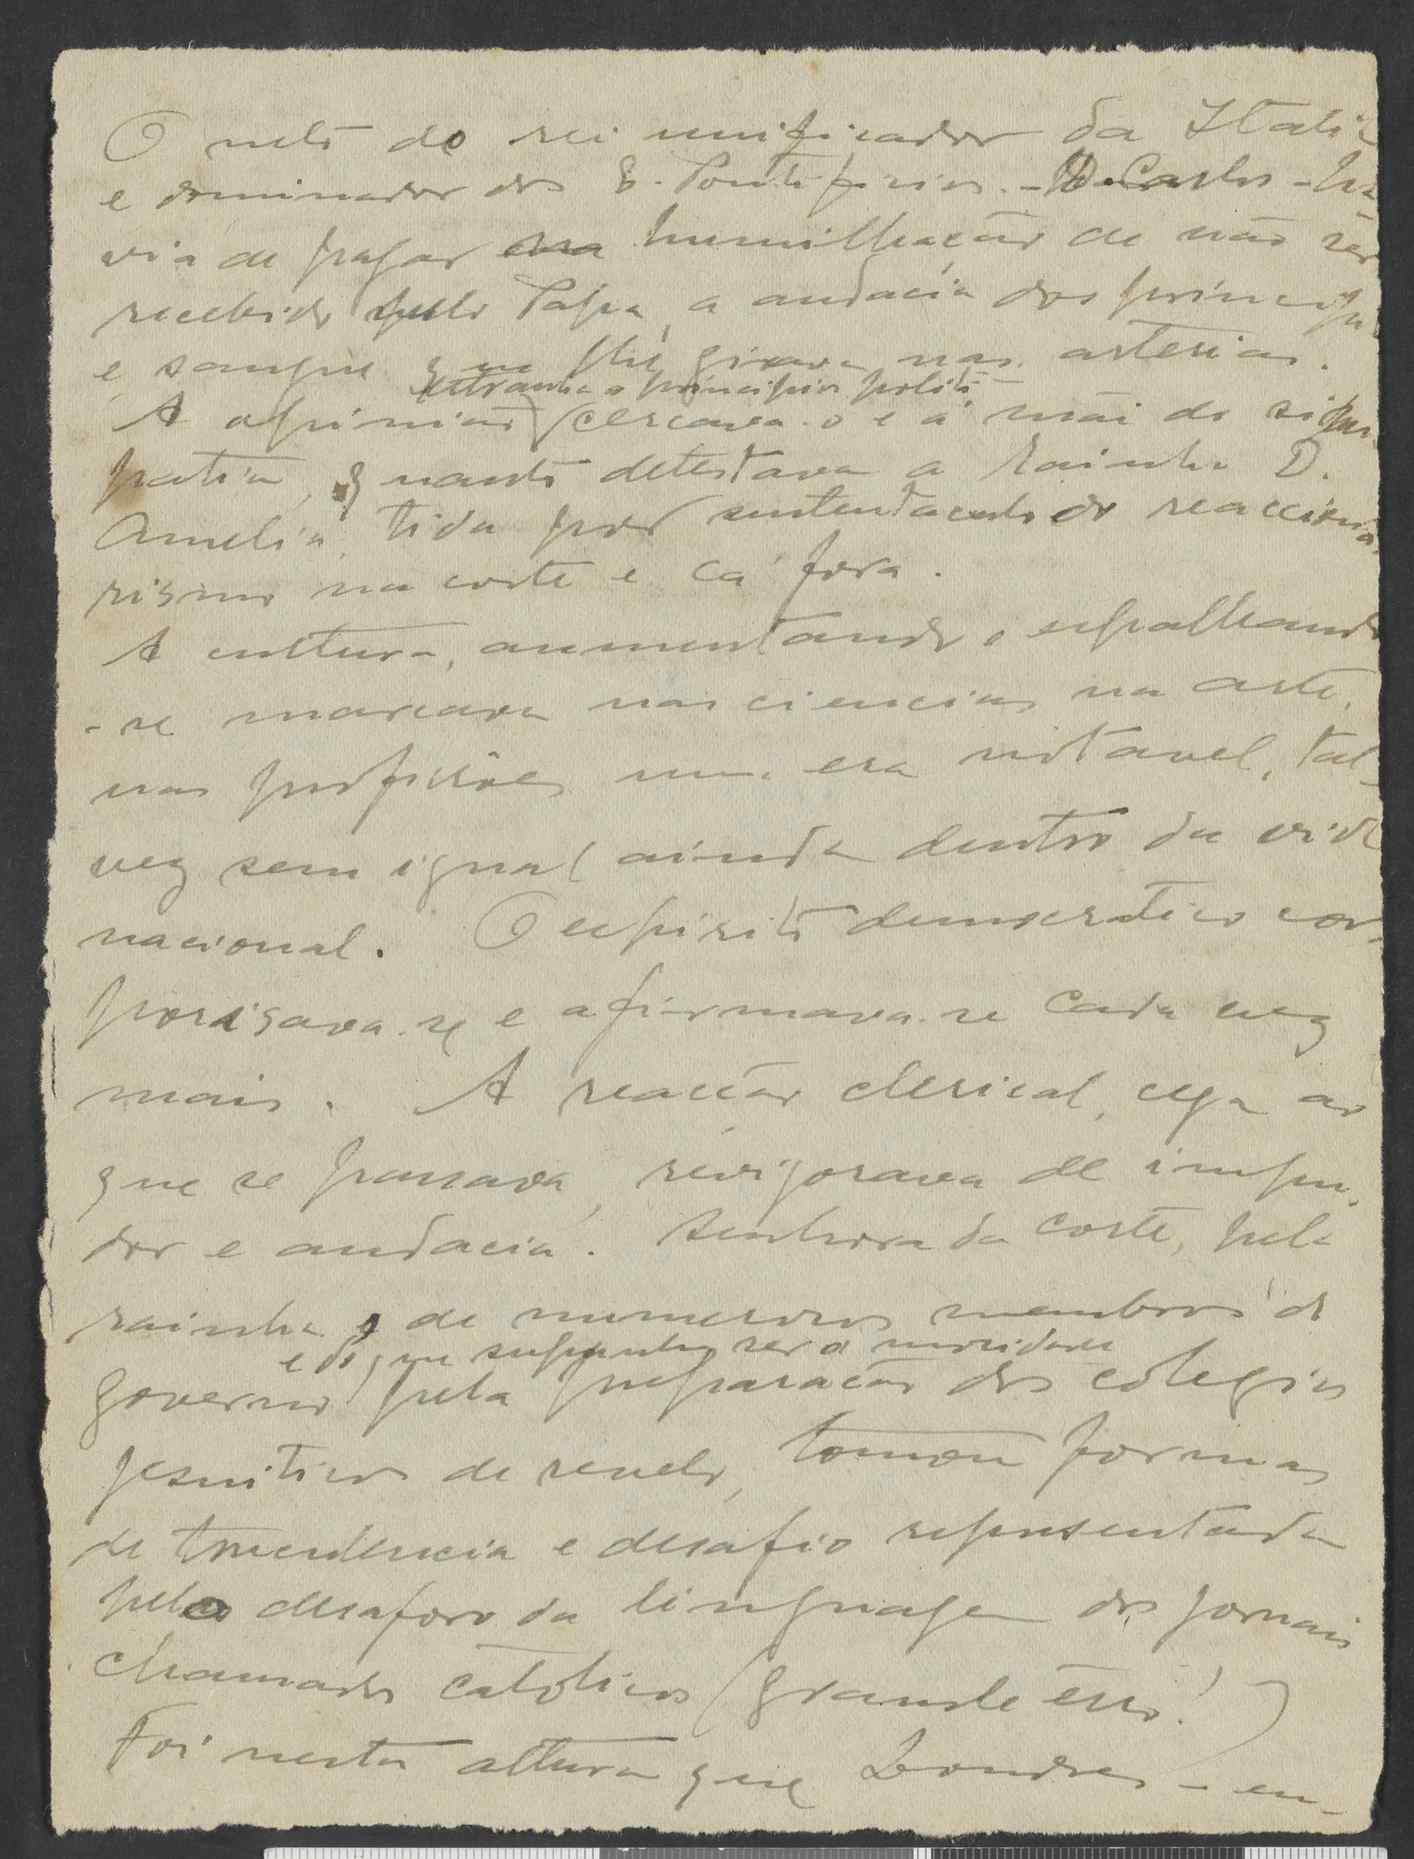 O neto do rei unificador da Italia
e dominador dos E. Pontificios - D. Carlos - ha-
via de pagar humilhação de não ser
recebido pelo Papa, a audacia dos principios
e sangue que lhe girava nas arterias.
extranha a principios politi-
A opinião cercava-o e á mãi de sim-
patia, quanto detestava a Rainha D.
Amelia, tida por sustentaculo do reacciona-
rismo na corte e cá fora.
A cultura, aumentando e espalhando
-se marcava nas ciencias na arte,
nas profissões uma era notavel, tal-
vez sem igual ainda dentro da vida
nacional. O espirito democratico cor-
porisava-se e afirmava-se cada vez
mais. A reacção clerical, cega ao
que se passava, revigorava de impu-
dor e audacia. Senhora da corte, pela
rainha e de numerosos membros do
e do que supunha ser a mocidade
governo pela preparação dos colegios
jesuiticos de renelo, tomou formas
de truculencia e desafio representada
pelo desaforo da linguagem dos jornais
chamados catolicos (grande erro!)
Foi nesta altura que Londres - en-